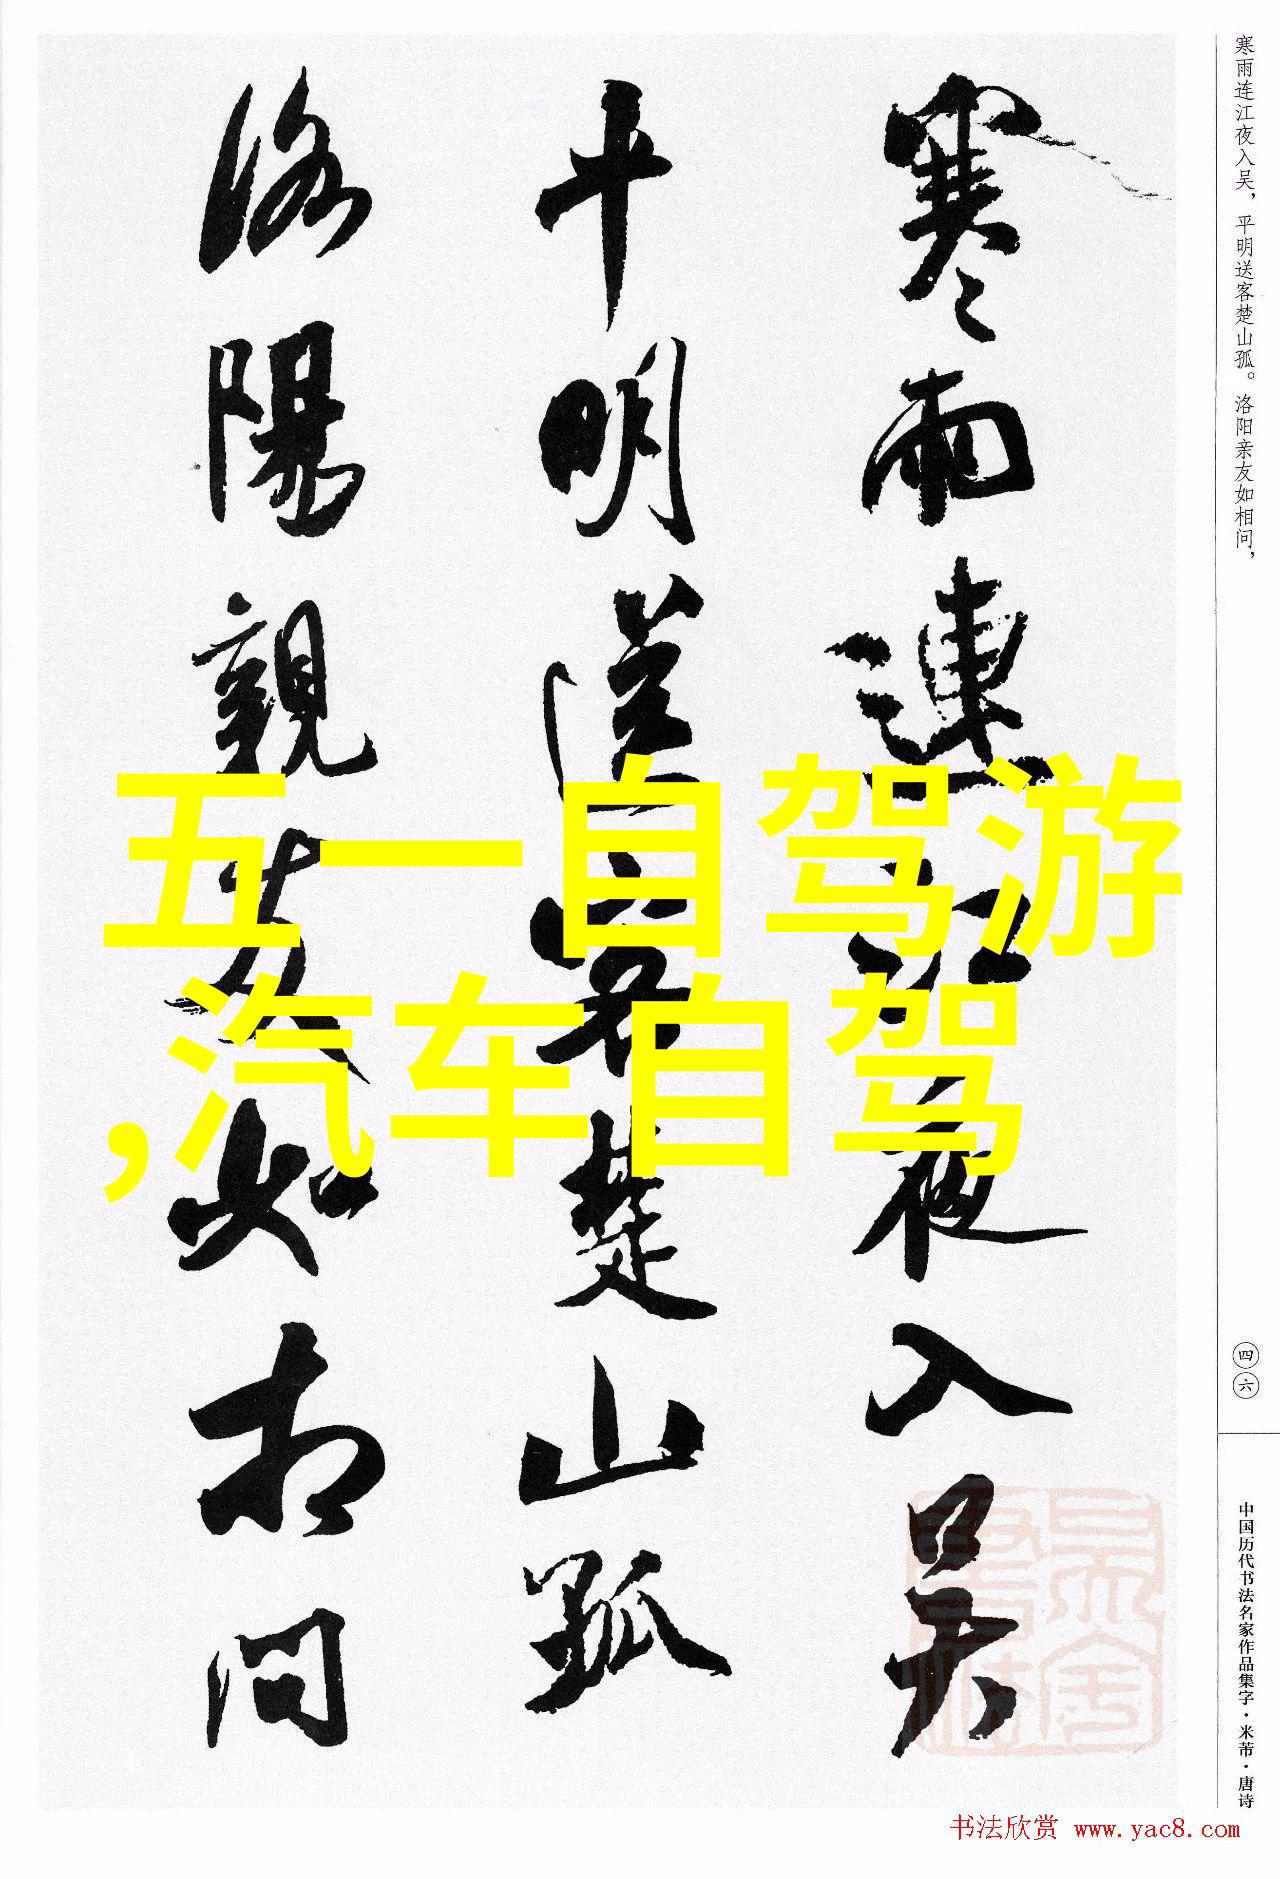 寒雨連江夜入吴
平明送客楚山孤
洛陽親友如相问
五一自驾游
,汽车自驾
寒雨连江夜入吴，平明送客楚山孤。洛阳亲友如相问，
四六
中国历代书法名家作品集字·米芾·唐诗
书法欣赏 www.yac8.com